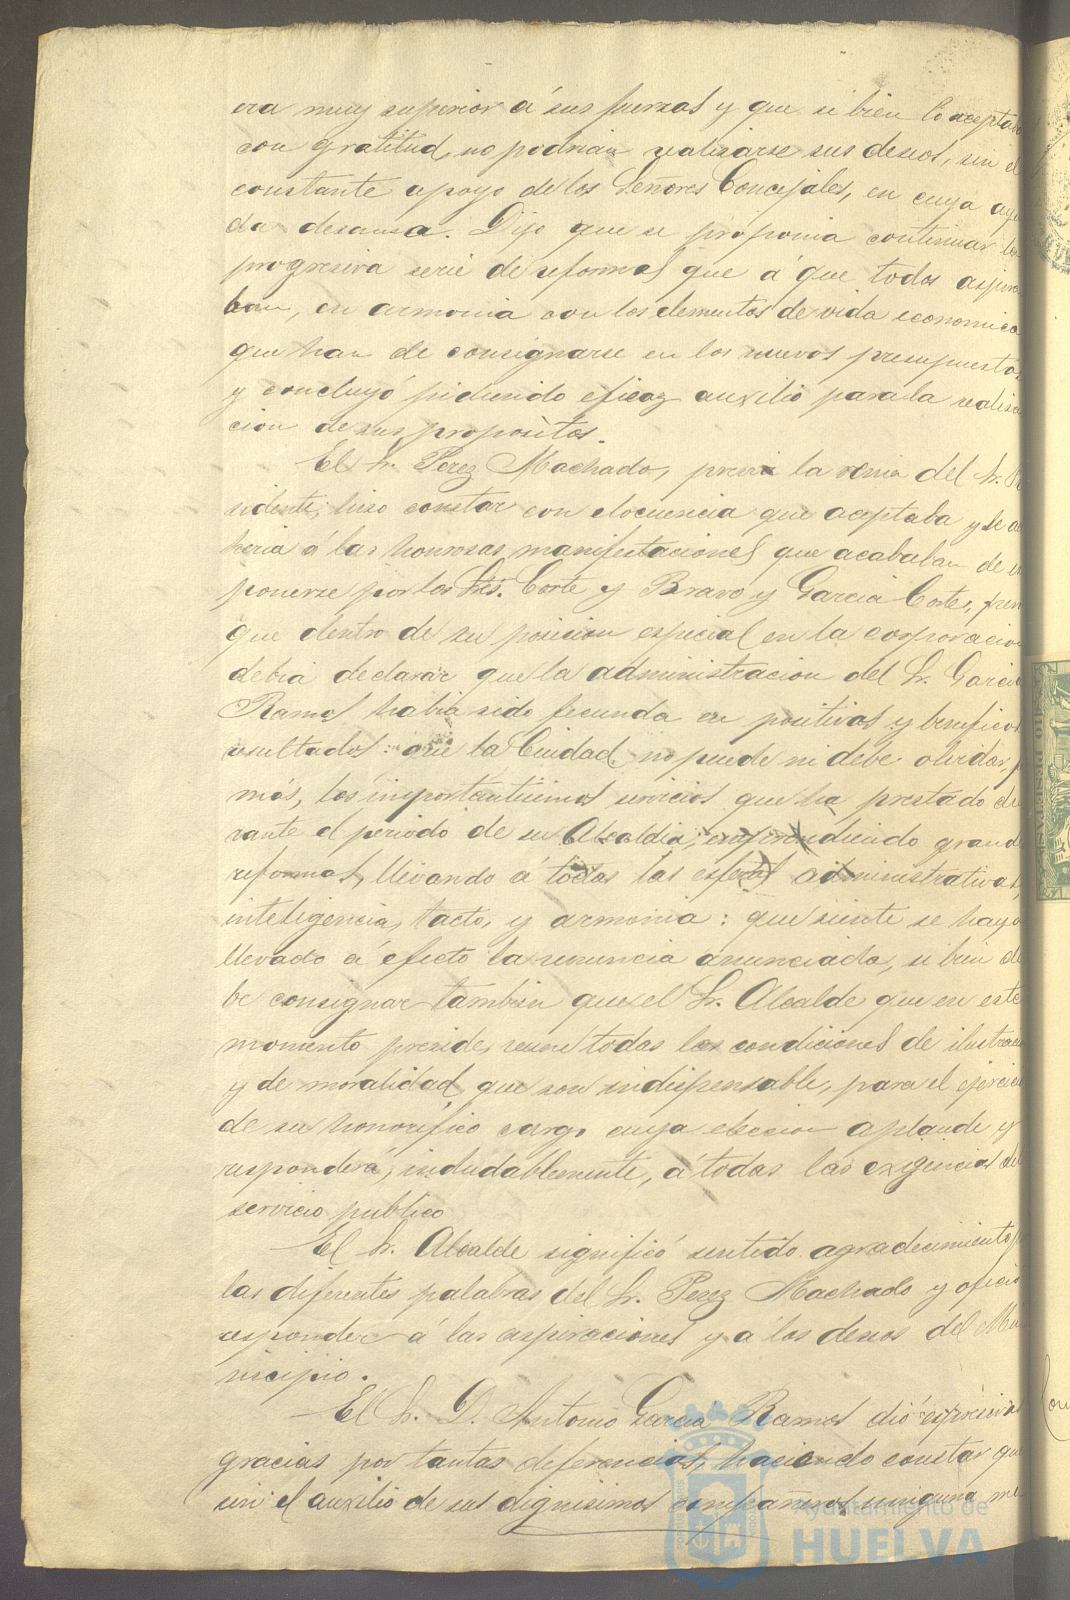 era muy superior á sus fuerzas y que si bien lo aceptaba
con gratitud, no podrian realizarse sus deseos, sin el
constante apoyo de los Señores Concejales, en cuya ayu
da descansa. Dijo que se proponia continuar la
progresiva serie de reformas que á que todos aspira
ban, en armonia con los elementos de vida economica
que han de consignarse en los nuevos presupuestos
y concluyó pidiendo eficaz auxilio para la realiza
cion de sus propositos.
El Sr. Perez Machado, previa la venia del Sr. Pre
sidente, hizo constar con elocuencia que aceptaba y se ad
heria á las honrosas manifestaciones que acababan de ex
ponerse por los Srs. Corte y Bravo y Garcia Cortes,
que dentro de su posicion especial en la corporacion
debia declarar que la administracion del Sr. Garcia
Ramos habia sido fecunda en positivos y beneficos
resultados: que la Ciudad no puede ni debe olvidar ja
más, los importantisimos servicios que ha prestado du
rante el periodo de su Alcaldia, emprendiendo grandes
reformas, llevando á todas las esferas administrativas,
inteligencia, tacto, y armonia: que siente se haya
llevado á efecto la renuncia anunciada, si bien de
be consignar tambien que el Sr. Alcalde que en este
momento preside, reune todas las condiciones de ilustracion
y de moralidad que son indispensable, para el ejercicio
de su honorifico cargo cuya eleccion aplaude y
responderá, indudablemente, á todas las exigencias del
servicio publico
El Sr. Alcalde significó sentido agradecimiento por
las diferentes palabras del Sr. Perez Machado y ofreció
responder á las aspiraciones y á los deseos del Mu
nicipio.
El Sr. D. Antonio Garcia Ramos dió expresivas
gracias por tantas deferencias, haciendo constar que
sin el auxilio de sus dignisimos compañeros ninguna me
Ayuntamiento de
HUELVA